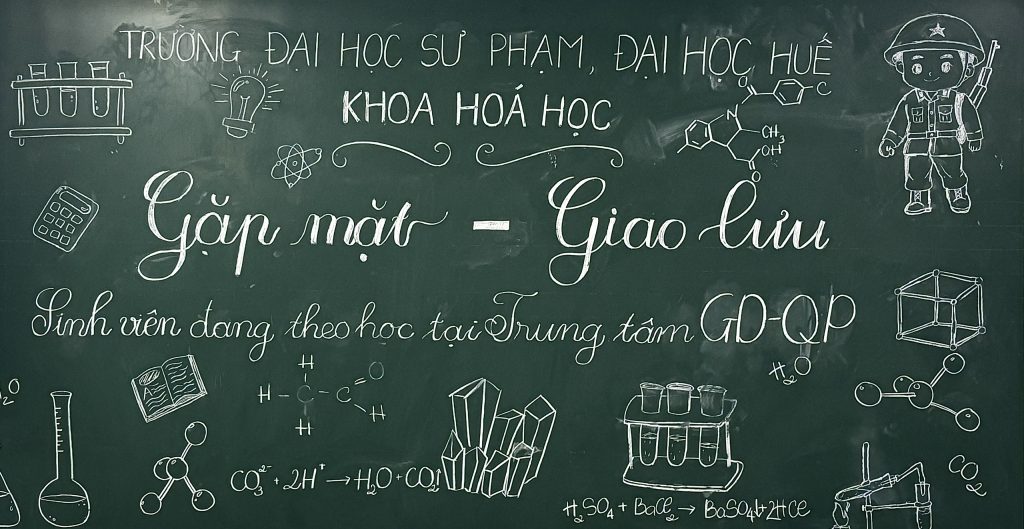 TRƯỜNG ĐẠI HỌC SƯ PHẠM, ĐẠI HỌC HUẾ
KHOA HOÁ HỌC
O
N
C
CH₃
OH
O
Gặp mặt - Giao lưu
Sinh viên đang theo học tại Trung tâm GD-QP
H₂O
₂O
H
H - C - C = O
H
H
CO₃²⁻ + 2H⁺ → H₂O + CO₂↑
CO₂
H₂SO₄ + BaCl₂ → BaSO₄↓ + 2HCl